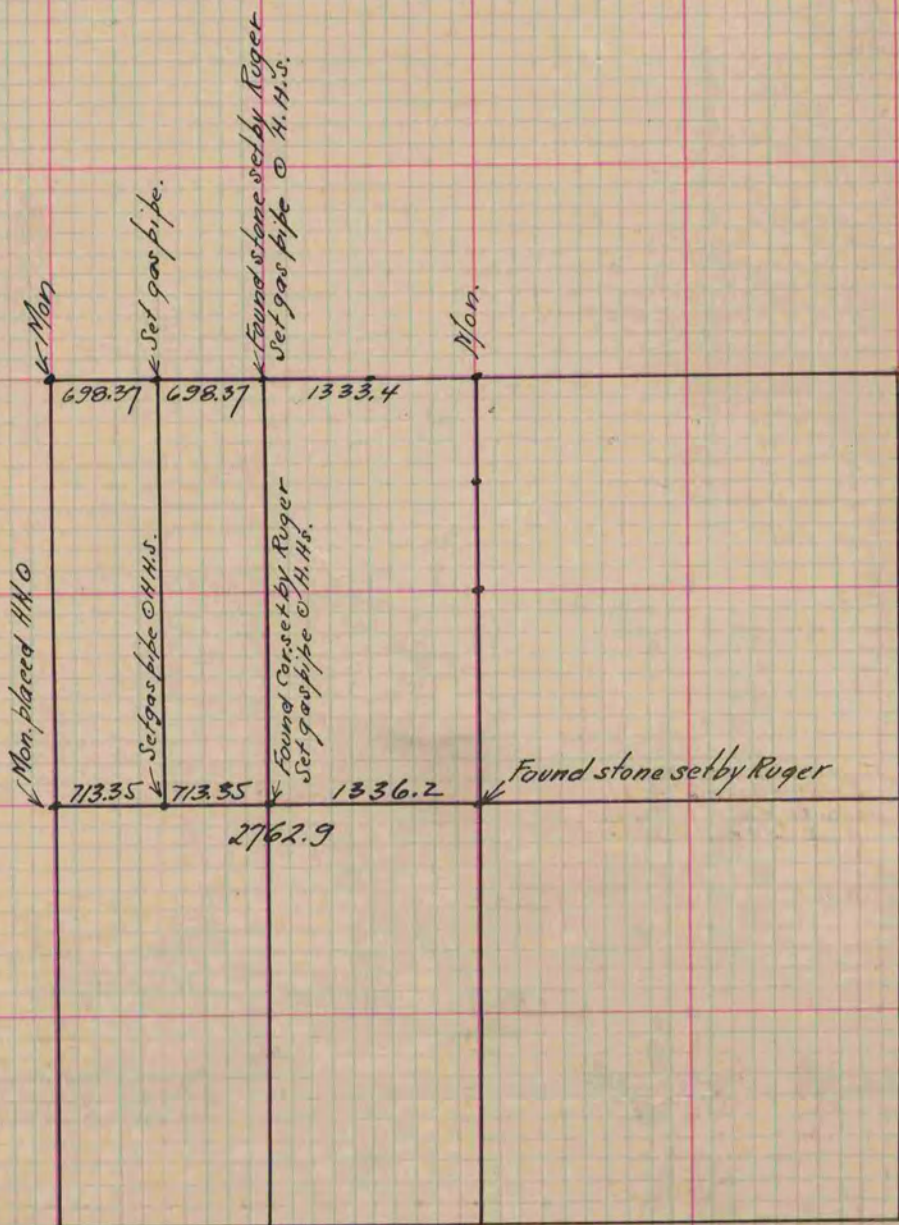 Mon
Set gas pipe.
Found stone set by Ruger
Set gas pipe @ H.H.S.
Mon.
698.37 698.37 1333.4
Mon. placed H.H.O
Set gas pipe @ H.H.S.
Found Cor. set by Ruger
Set gas pipe @ H.H.S.
Found stone set by Ruger
713.35 713.35 1336.2
2762.9